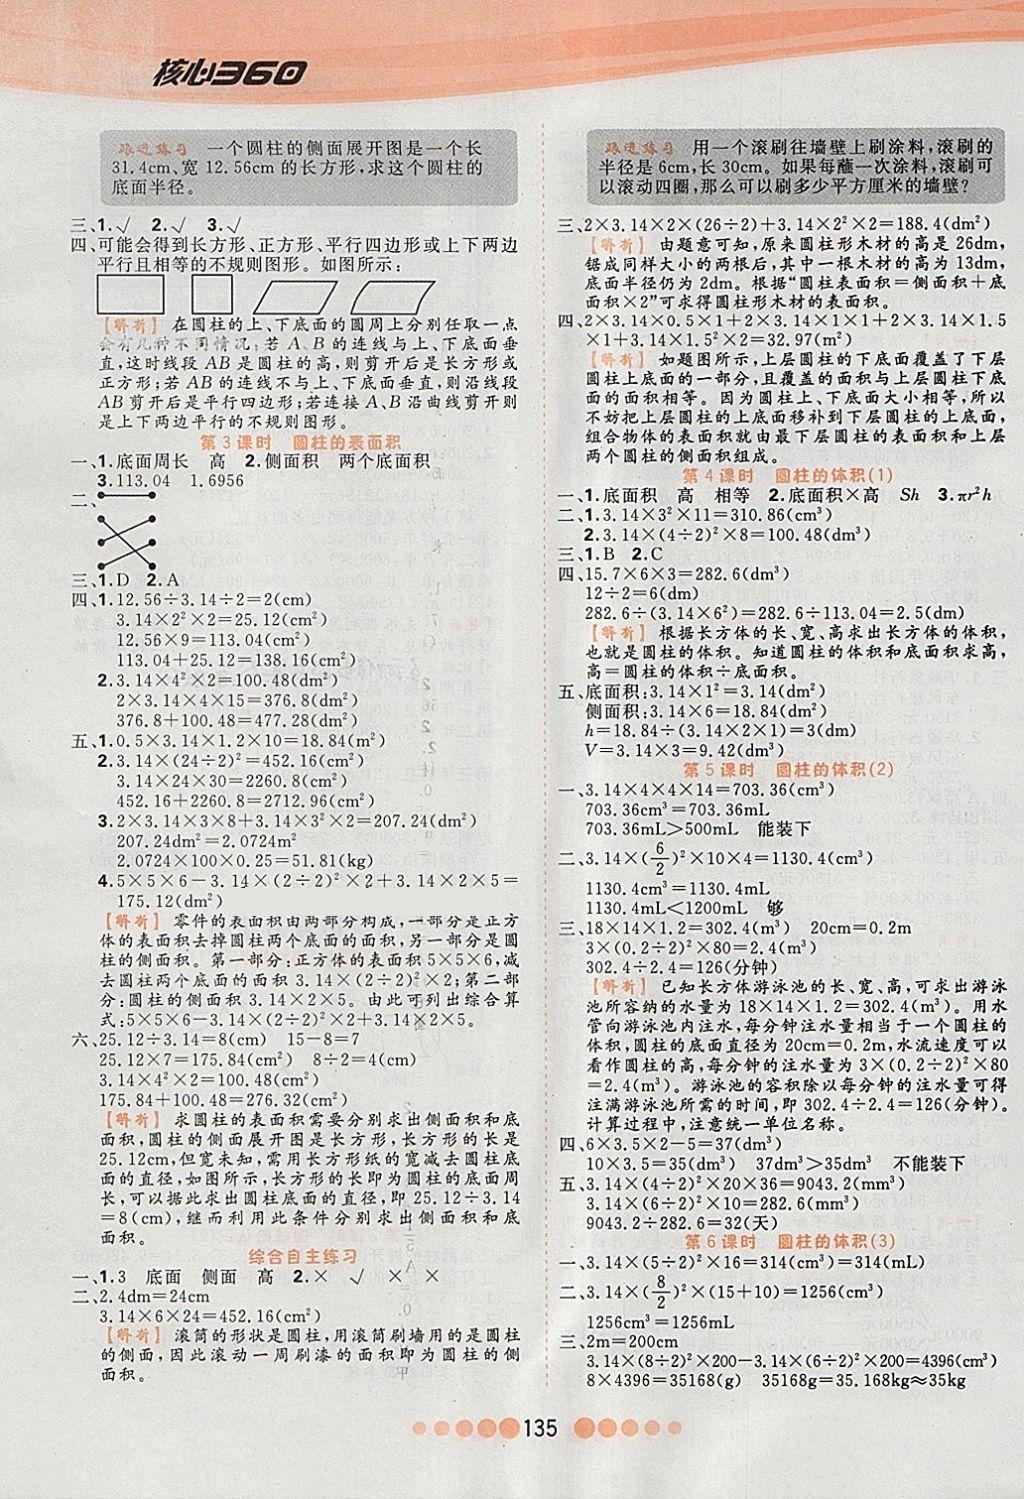 核心360
跟进练习 一个圆柱的侧面展开图是一个长
31.4cm、宽12.56cm的长方形,求这个圆柱的
底面半径。
三、1.√ 2.√ 3.√
四、可能会得到长方形、正方形、平行四边形或上下两边
平行且相等的不规则图形。如图所示:
【解析】 在圆柱的上、下底面的圆周上分别任取一点
会有几种不同情况:若A、B的连线与上、下底面垂
直,这时线段AB是圆柱的高,则剪开后是长方形或
正方形;若AB的连线不与上、下底面垂直,则沿线段
AB剪开后是平行四边形;若连接A、B沿曲线剪开则
是上下两边平行的不规则图形。
第3课时 圆柱的表面积
一、1.底面周长 高 2.侧面积 两个底面积
3.113.04 1.6956
二、
三、1.D 2.A
四、1.12.56÷3.14÷2=2(cm)
3.14×2²×2=25.12(cm²)
12.56×9=113.04(cm²)
113.04+25.12=138.16(cm²)
2.3.14×4²×2=100.48(dm²)
2×3.14×4×15=376.8(dm²)
376.8+100.48=477.28(dm²)
五、1.0.5×3.14×1.2×10=18.84(m²)
2.3.14×(24÷2)²=452.16(cm²)
3.14×24×30=2260.8(cm²)
452.16+2260.8=2712.96(cm²)
3.2×3.14×3×8+3.14×3²×2=207.24(dm²)
207.24dm²=2.0724m²
2.0724×100×0.25=51.81(kg)
4.5×5×6-3.14×(2÷2)²×2+3.14×2×5=
175.12(dm²)
【解析】 零件的表面积由两部分构成,一部分是正方
体的表面积去掉圆柱两个底面的面积,另一部分是圆
柱的侧面积。第一部分:正方体的表面积5×5×6,减
去圆柱两个底面的面积3.14×(2÷2)²×2;第二部
分:圆柱的侧面积3.14×2×5。由此可列出综合算
式:5×5×6-3.14×(2÷2)²×2+3.14×2×5。
六、25.12÷3.14=8(cm) 15-8=7
25.12×7=175.84(cm²) 8÷2=4(cm)
3.14×4²×2=100.48(cm²)
175.84+100.48=276.32(cm²)
【解析】 求圆柱的表面积需要分别求出侧面积和底
面积,圆柱的侧面展开图是长方形,长方形的长是
25.12cm,但宽未知,需用长方形纸的宽减去圆柱底
面的直径,如图所示,长方形的长即为圆柱的底面周
长,可以据此求出圆柱底面的直径,即25.12÷3.14
=8(cm),继而利用此条件分别求出侧面积和底
面积。
综合自主练习
一、1.3 底面 侧面 高 2.× √ × ×
二、2.4dm=24cm
3.14×6×24=452.16(cm²)
【解析】 滚筒的形状是圆柱,用滚筒刷墙用的是圆柱
的侧面,因此滚动一周刷漆的面积即为圆柱的侧
面积。
跟进练习 用一个滚刷往墙壁上刷涂料,滚刷的
半径是6cm,长30cm。如果每蘸一次涂料,滚刷可
以滚动四圈,那么可以刷多少平方厘米的墙壁?
三、2×3.14×2×(26÷2)+3.14×2²×2=188.4(dm²)
【解析】 由题意可知,原来圆柱形木材的高是26dm,
锯成同样大小的两根后,其中一根木材的高为13dm,
底面半径仍为2dm。根据“圆柱表面积=侧面积+底
面积×2”可求得圆柱形木材的表面积。
四、2×3.14×0.5×1+2×3.14×1×1+2×3.14×1.5
×1+3.14×1.5²×2=32.97(m²)
【解析】 如题图所示,上层圆柱的下底面覆盖了下层
圆柱上底面的一部分,且覆盖的面积与上层圆柱下底
面的面积相等。因为圆柱上、下底面大小相等,所以
不妨把上层圆柱的上底面移补到下层圆柱的上底面,
组合物体的表面积就由最下层圆柱的表面积和上层
两个圆柱的侧面积组成。
第4课时 圆柱的体积(1)
一、1.底面积 高 相等 2.底面积×高 Sh 3.πr²h
二、1.3.14×3²×11=310.86(cm³)
2.3.14×(4÷2)²×8=100.48(dm³)
三、1.B 2.C
四、15.7×6×3=282.6(dm³)
12÷2=6(dm)
282.6÷(3.14×6²)=282.6÷113.04=2.5(dm)
【解析】 根据长方体的长、宽、高求出长方体的体积,
也就是圆柱的体积。知道圆柱的体积和底面积求高,
高=圆柱的体积÷底面积。
五、底面积:3.14×1²=3.14(dm²)
侧面积:3.14×6=18.84(dm²)
h=18.84÷(3.14×2×1)=3(dm)
V=3.14×3=9.42(dm³)
第5课时 圆柱的体积(2)
一、3.14×4×4×14=703.36(cm³)
703.36cm³=703.36mL
703.36mL>500mL 能装下
二、3.14×(6/2)²×10×4=1130.4(cm³)
1130.4cm³=1130.4mL
1130.4mL<1200mL 够
三、18×14×1.2=302.4(m³) 20cm=0.2m
3×(0.2÷2)²×80=2.4(m³)
302.4÷2.4=126(分钟)
【解析】 已知长方体游泳池的长、宽、高,可求出游泳
池所容纳的水量为18×14×1.2=302.4(m³)。用水
管向游泳池内注水,每分钟注水量相当于一个圆柱的
体积,圆柱的底面直径为20cm=0.2m,水流速度可以
看作圆柱的高,每分钟的注水量为3×(0.2÷2)²×80
=2.4(m³)。游泳池的容积除以每分钟的注水量可得
注满游泳池所需的时间,即302.4÷2.4=126(分钟)。
计算过程中,注意统一单位名称。
四、6×3.5×2-5=37(dm³)
10×3.5=35(dm³) 37dm³>35dm³ 不能装下
五、3.14×(4÷2)²×20×36=9043.2(mm³)
3.14×(6÷2)²×10=282.6(mm³)
9043.2÷282.6=32(天)
第6课时 圆柱的体积(3)
一、3.14×(5÷2)²×16=314(cm³)=314(mL)
二、3.14×(8/2)²×(15+10)=1256(cm³)
1256cm³=1256mL
三、2m=200cm
3.14×(8÷2)²×200-3.14×(6÷2)²×200=4396(cm³)
8×4396=35168(g) 35168g=35.168kg≈35kg
135